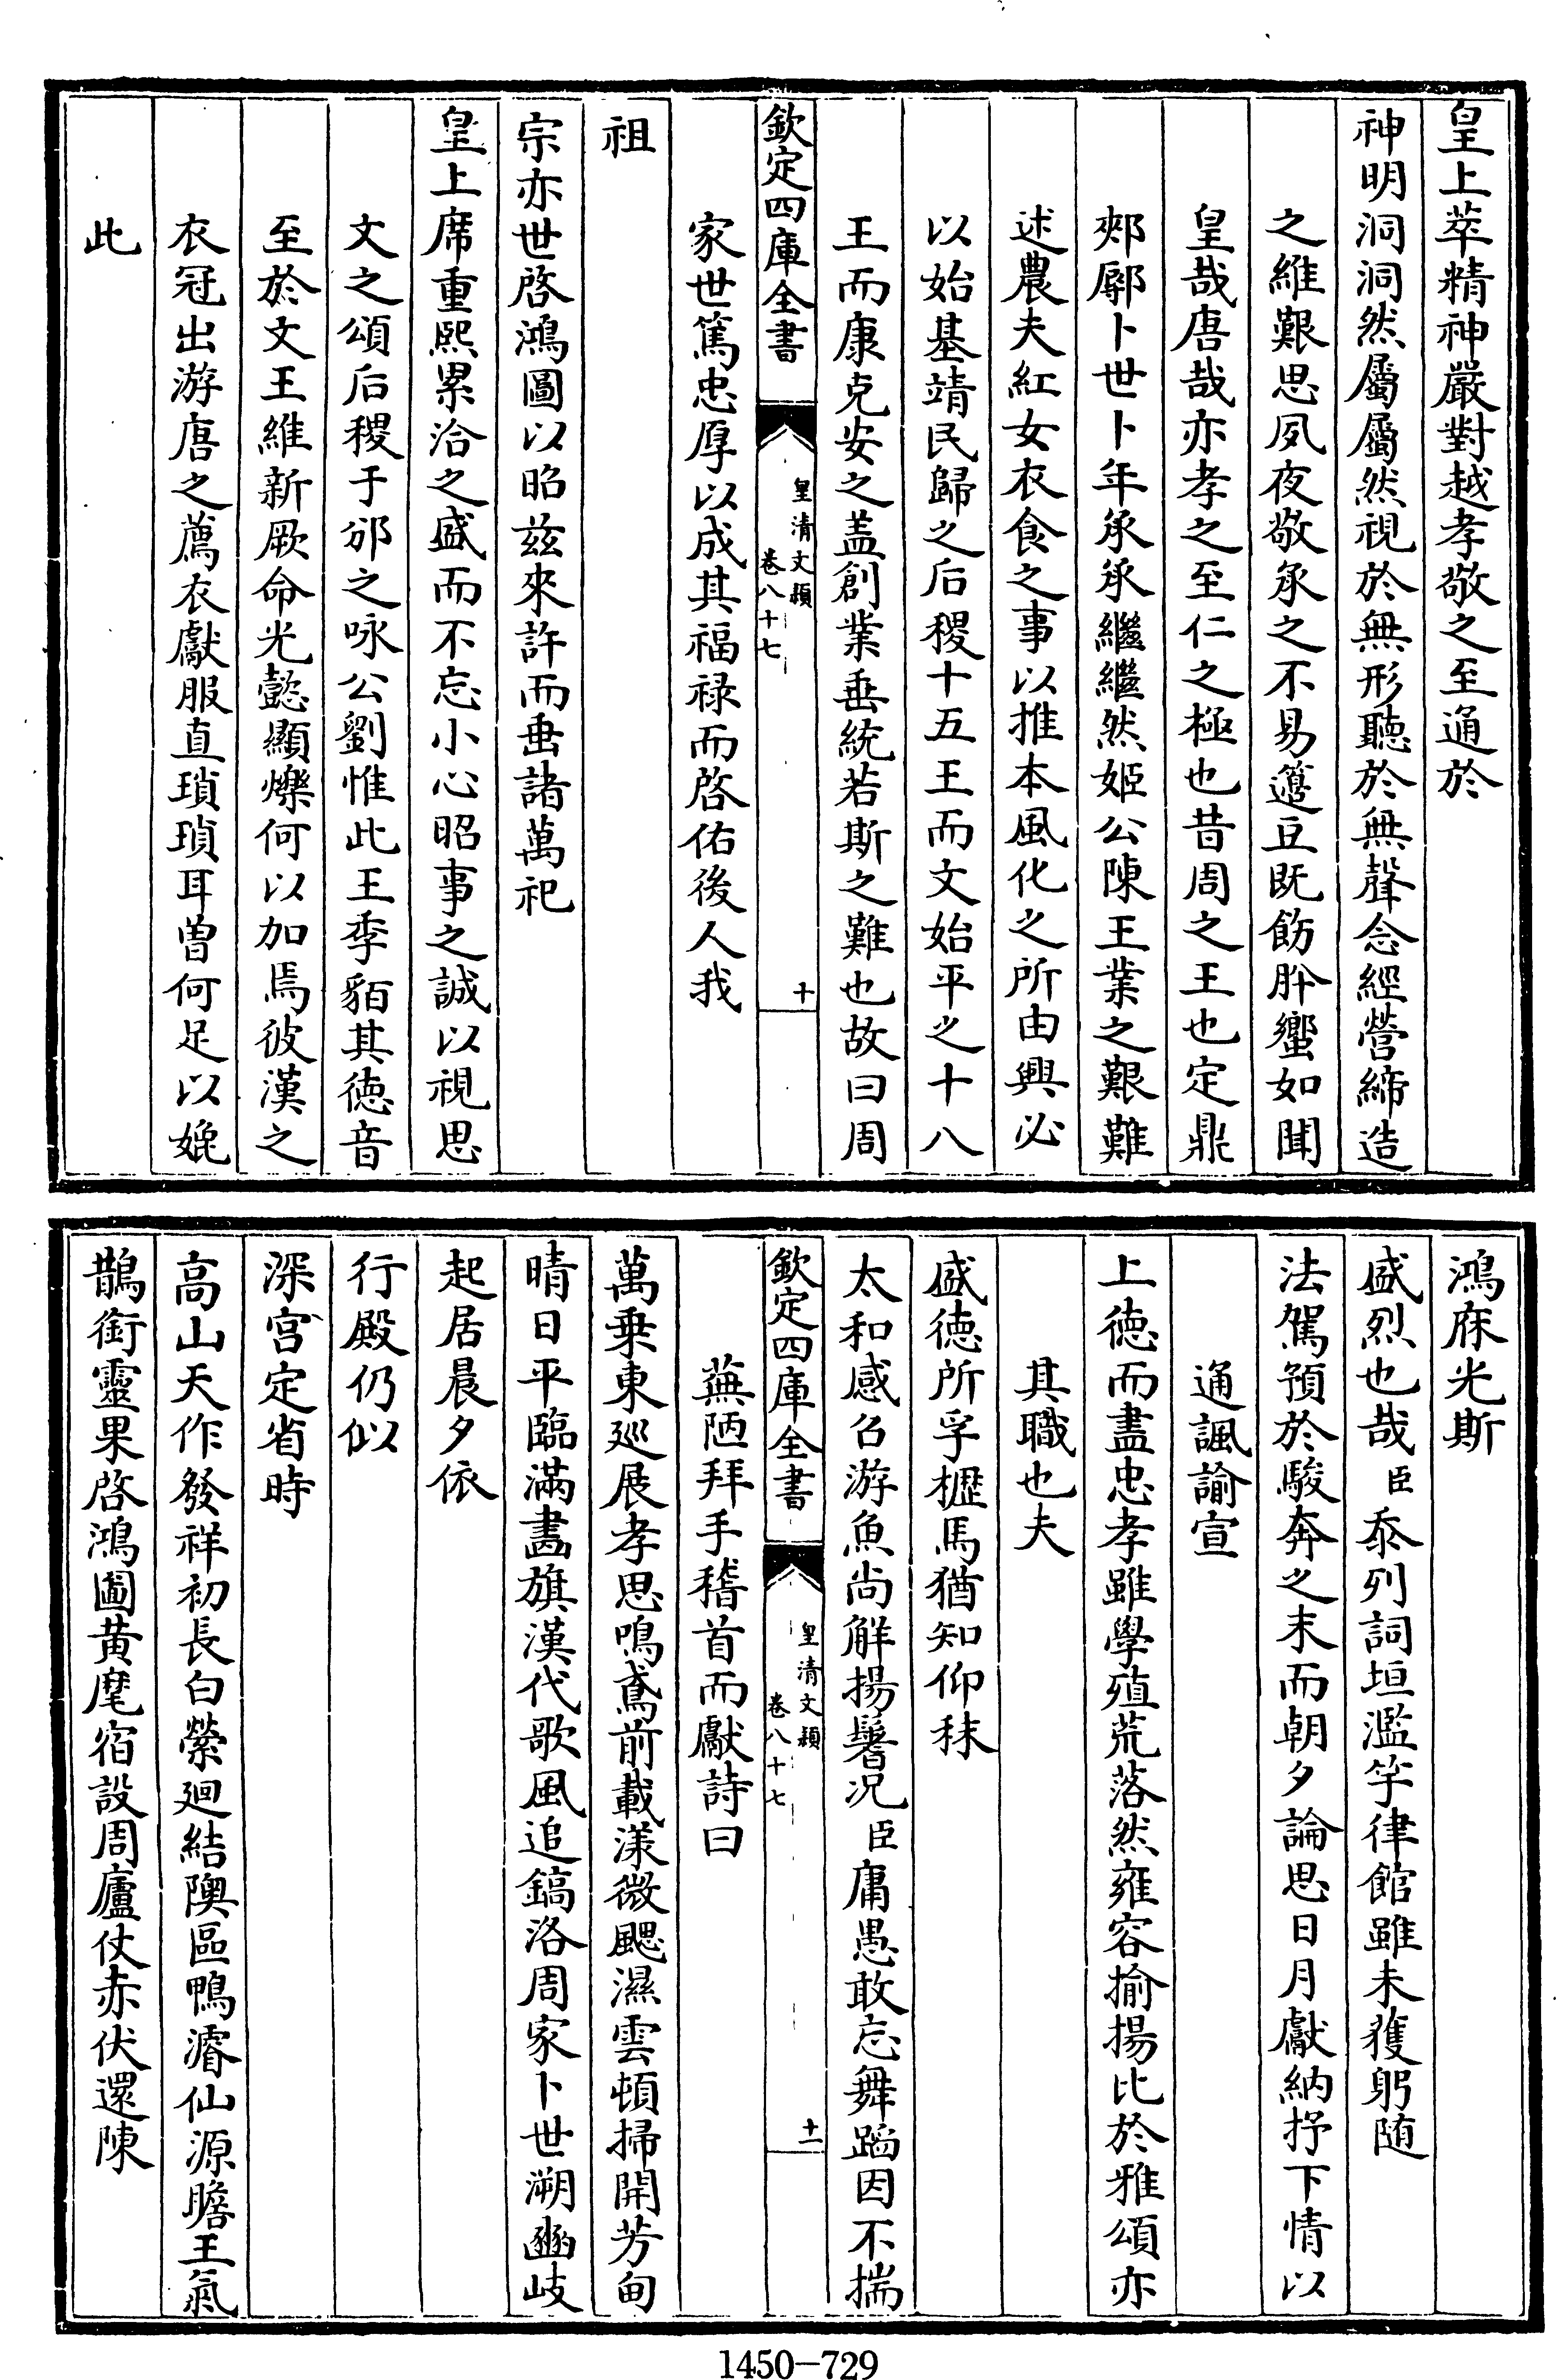 皇上萃精神嚴對越孝敬之至通於
神明洞洞然屬屬然視於無形聽於無聲念經營締造
之維艱思夙夜敬承之不易籩豆既飭肸蠁如聞
皇哉唐哉亦孝之至仁之極也昔周之王也定鼎
郟鄏卜世卜年承承繼繼然姬公陳王業之艱難
述農夫紅女衣食之事以推本風化之所由興必
以始基靖民歸之后稷十五王而文始平之十八
王而康克安之盖創業垂統若斯之難也故曰周
欽定四庫全書
皇清文穎
卷八十七
十
家世篤忠厚以成其福禄而啓佑後人我
祖
宗亦世啓鴻圖以昭兹來許而垂諸萬祀
皇上席重熙累洽之盛而不忘小心昭事之誠以視思
文之頌后稷于邠之咏公劉惟此王季貊其德音
至於文王維新厥命光懿顯爍何以加焉彼漢之
衣冠出游唐之薦衣獻服直瑣瑣耳曽何足以娩
此
鴻庥光斯
盛烈也哉臣忝列詞垣濫竽律館雖未獲躬随
法駕預於駿奔之末而朝夕論思日月獻納抒下情以
通諷諭宣
上徳而盡忠孝雖學殖荒落然雍容揄揚比於雅頌亦
其職也夫
盛徳所孚櫪馬猶知仰秣
太和感召游魚尚解揚鬐况臣庸愚敢忘舞蹈因不揣
欽定四庫全書
皇清文穎
卷八十七
十一
蕪陋拜手稽首而獻詩曰
萬乗東廵展孝思鳴鳶前載漾微颸濕雲頓掃開芳甸
晴日平臨滿畵旗漢代歌風追鎬洛周家卜世溯豳岐
起居晨夕依
行殿仍似
深宫定省時
高山天作發祥初長白縈廻結隩區鴨濬仙源瞻王氣
鵲銜靈果啓鴻圖黄麾宿設周廬仗赤伏還陳
1450-729